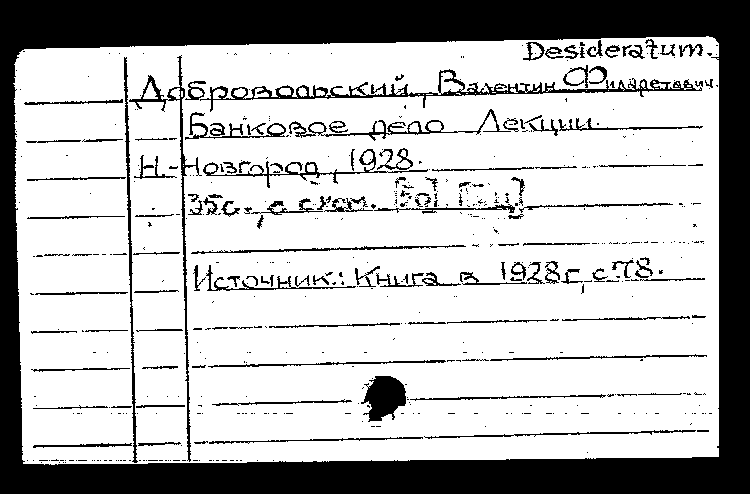 Desideratum.
Добровольский, Валентин Филаретович.
Банковое дело Лекции.
Н.-Новгород, 1928.
35с., с схем. [Бо]
Источник: Книга в 1928г, с.78.